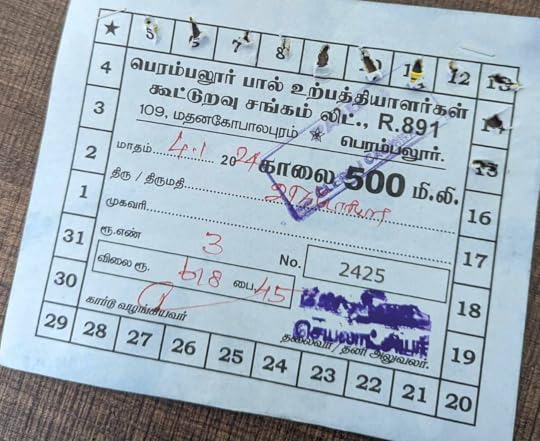 ★ 5 6 7 8 10 11 12 13
4 பெரம்பலூர் பால் உற்பத்தியாளர்கள் 14
3 கூட்டுறவு சங்கம் லிட்., R.891 15
109, மதனகோபாலபுரம் ★ பெரம்பலூர்.
2 மாதம் 4.1 2024 காலை 500 மி.லி.
திரு / திருமதி 16
1 முகவரி 17
31 ரூ.எண் 3 No. 2425
விலை ரூ. 618 பை. 45 18
30 கார்டு வழங்கியவர்
செயலாட்சியர்
தலைவர் / தனி அலுவலர். 19
29 28 27 26 25 24 23 22 21 20